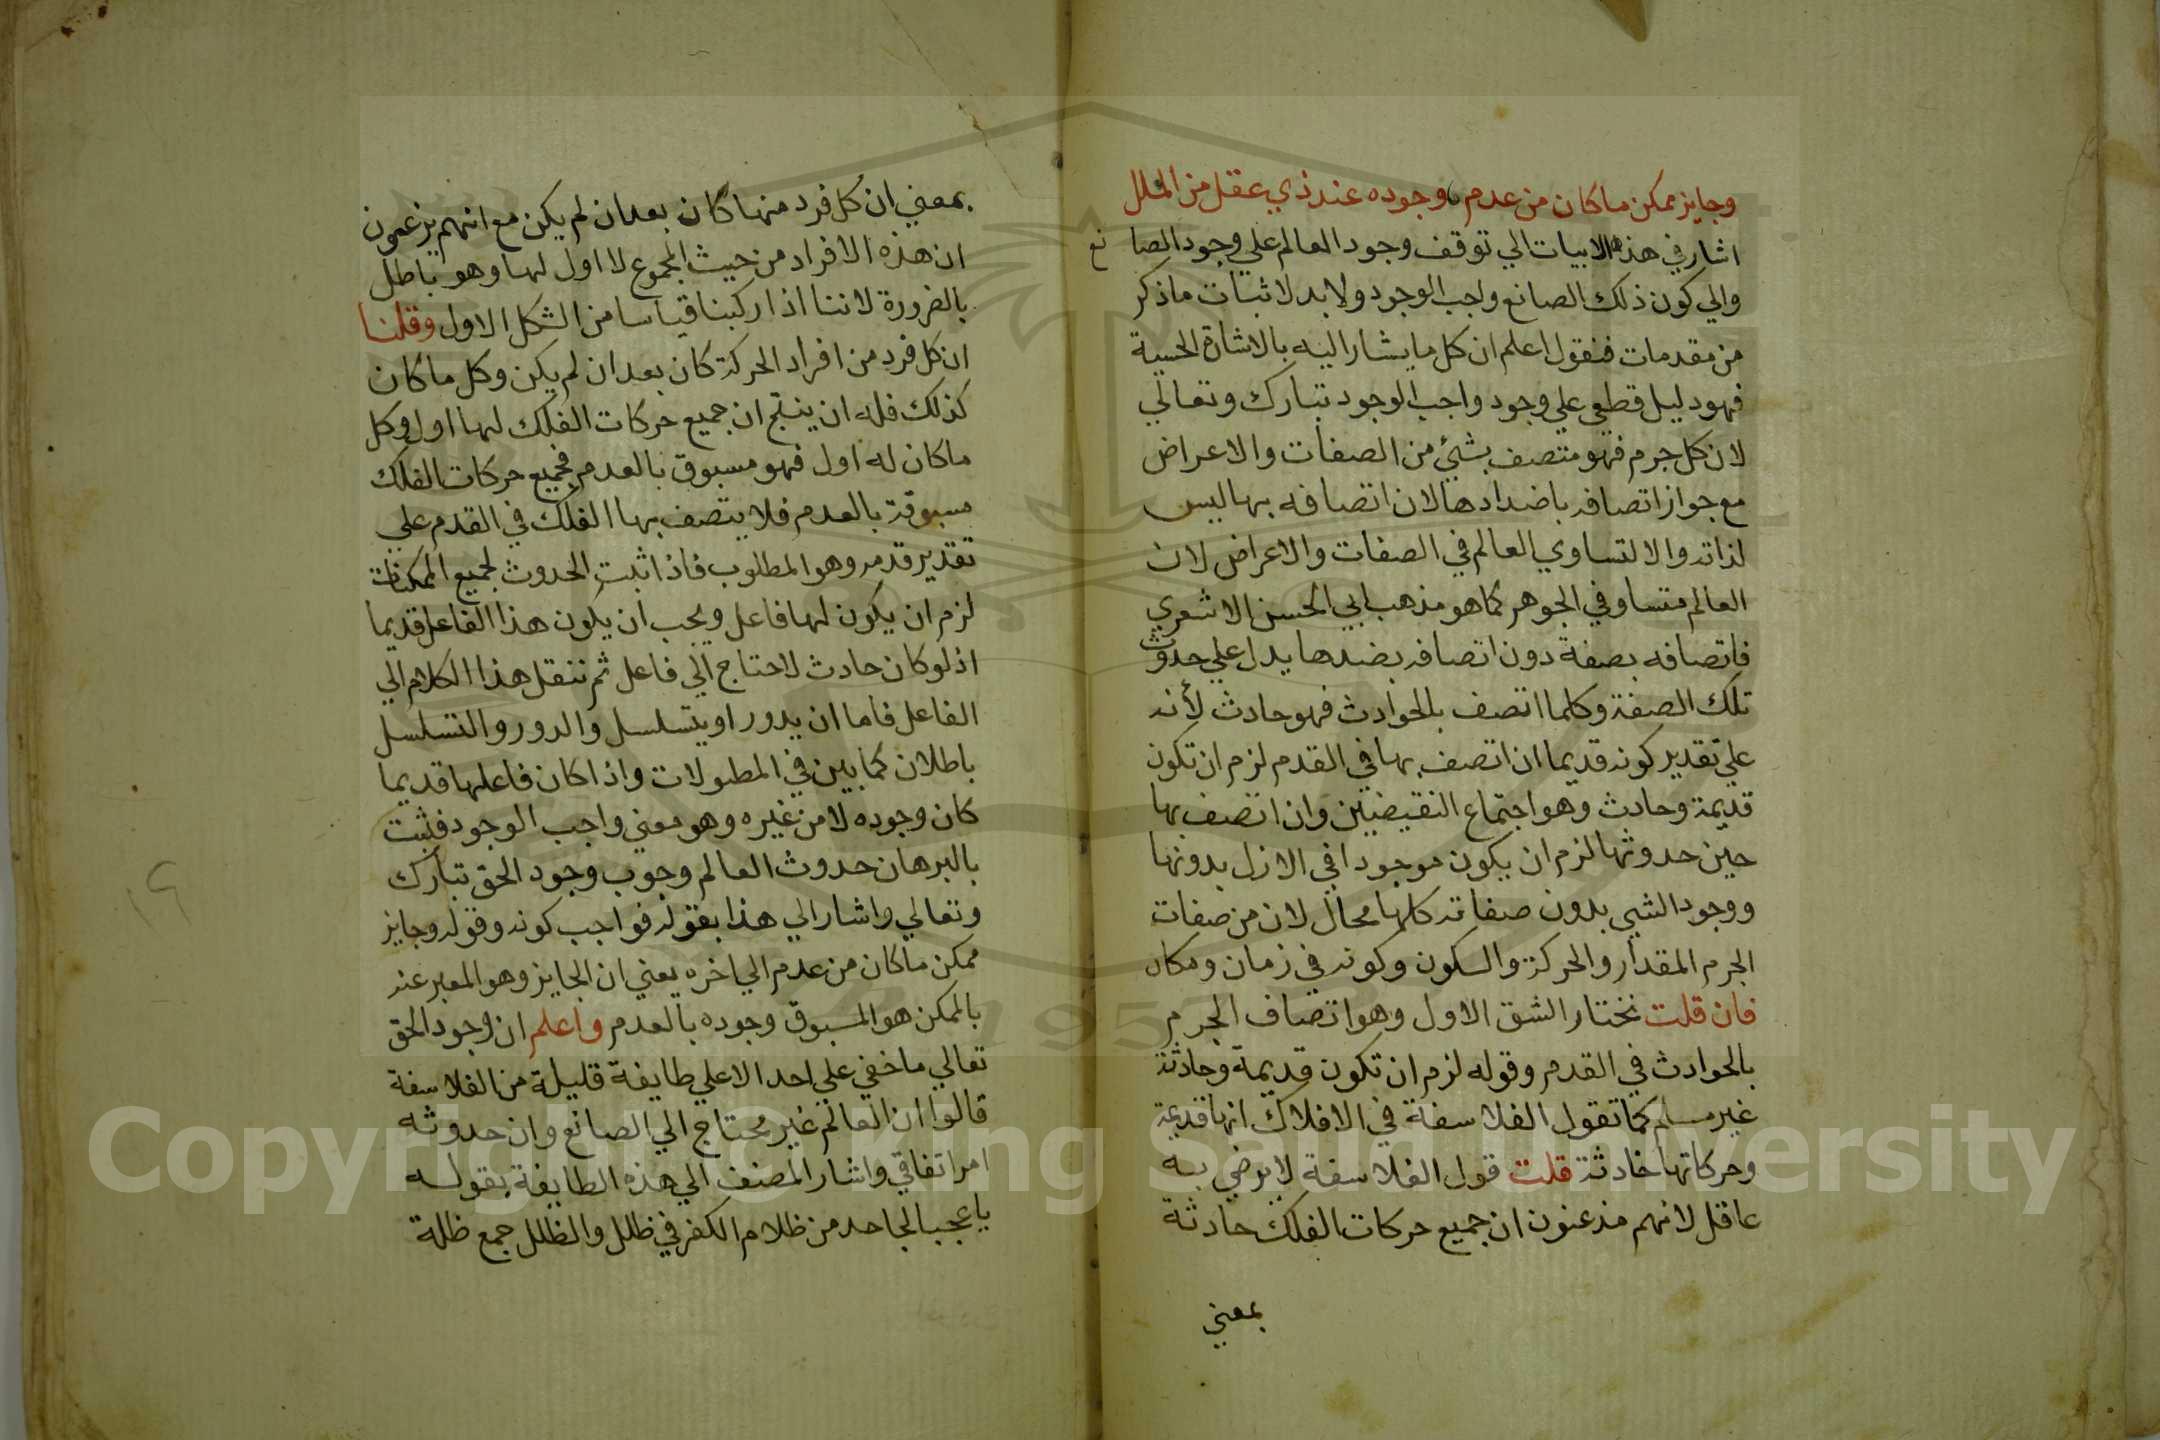 وجايز ممكن ما كان من عدم وجوده عند ذي عقل من الملل
اشار في هذه الابيات الي توقف وجود العالم علي وجود الصانع
والي كون ذلك الصانع واجب الوجود ولابد لاثبات ما ذكر
من مقدمات فنقول اعلم ان كل ما يشار اليه بالاشارة الحسية
فهو دليل قطعي علي وجود واجب الوجود تبارك وتعالي
لان كل جرم فهو متصف بشئ من الصفات والاعراض
مع جواز اتصافه باضدادها لان اتصافه بها ليس
لذاته والا لتساوي العالم في الصفات والاعراض لان
العالم متساو في الجوهر كما هو مذهب ابي الحسن الاشعري
فاتصافه بصفة دون اتصافه بضدها يدل علي حدوث
تلك الصفة وكلما اتصف بالحوادث فهو حادث لأنه
علي تقدير كونه قديما ان اتصف بها في القدم لزم ان تكون
قديمة وحادث وهو اجتماع النقيضين وان اتصف بها
حين حدوثها لزم ان يكون موجودا في الازل بدونها
ووجود الشي بدون صفاته كلها محال لان من صفات
الجرم المقدار والحركة والسكون وكونه في زمان ومكان
فان قلت نختار الشق الاول وهو اتصاف الجرم
بالحوادث في القدم وقوله لزم ان تكون قديمة وحادثة
غير مسلم كما تقول الفلاسفة في الافلاك انها قديمة
وحركاتها حادثة قلت قول الفلاسفة لا يرضي به
عاقل لانهم مذعنون ان جميع حركات الفلك حادثة
بمعني
بمعني ان كل فرد منها كان بعد ان لم يكن مع انهم يزعمون
ان هذه الافراد من حيث المجموع لا اول لها وهو باطل
بالضرورة لاننا اذا ركبنا قياسا من الشكل الاول وقلنا
ان كل فرد من افراد الحركة كان بعد ان لم يكن وكل ما كان
كذلك فله ان ينتج ان جميع حركات الفلك لها اول وكل
ما كان له اول فهو مسبوق بالعدم فجميع حركات الفلك
مسبوقة بالعدم فلا يتصف بها الفلك في القدم علي
تقدير قدمه وهو المطلوب فاذا ثبت الحدوث لجميع الممكنات
لزم ان يكون لها فاعل ويجب ان يكون هذا الفاعل قديما
اذ لو كان حادث لاحتاج الي فاعل ثم ننقل هذا الكلام الي
الفاعل فاما ان يدور او يتسلسل والدور والتسلسل
باطلان كما بين في المطولات واذا كان فاعلها قديما
كان وجوده لا من غيره وهو معني واجب الوجود فثبت
بالبرهان حدوث العالم وجوب وجود الحق تبارك
وتعالي واشار الي هذا بقوله فواجب كونه وقوله وجايز
ممكن ما كان من عدم الي اخره يعني ان الجايز وهو المعبر عنه
بالممكن هو المسبوق وجوده بالعدم واعلم ان وجود الحق
تعالي ما خفي علي احد الا علي طايفة قليلة من الفلاسفة
قالوا ان العالم غير محتاج الي الصانع وان حدوثه
امر اتفاقي واشار المصنف الي هذه الطايفة بقوله
يا عجبا لجاحد من ظلام الكفر في ظلل والظلل جمع ظلمة
١٦
Copyright © King Saud University
1957